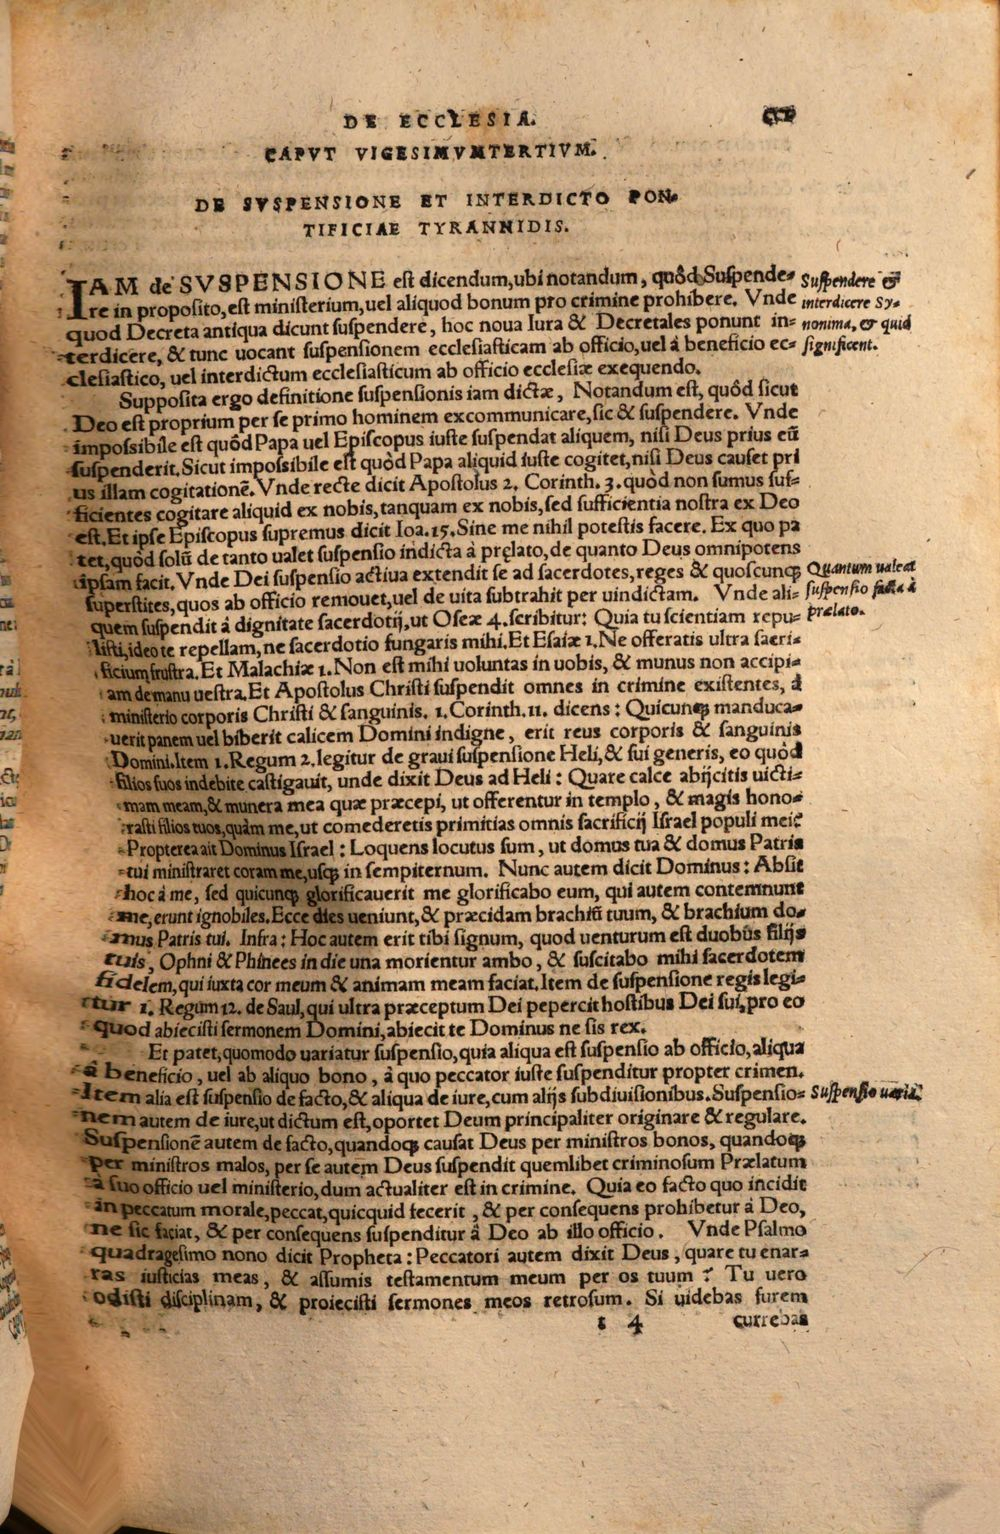 DE ECCLESIA.
CAPVT VIGESIMVMTERTIVM.
DE SVSPENSIONE ET INTERDICTO PON-
TIFICIAE TYRANNIDIS.
IAM de SVSPENSIONE eſt dicendum,ubi notandum, quôd Suſpende-
re in propoſito,eſt miniſterium,uel aliquod bonum pro crimine prohibere. Vnde
quod Decreta antiqua dicunt ſuſpendere, hoc noua Iura & Decretales ponunt in-
terdicere, & tunc uocant ſuſpenſionem eccleſiaſticam ab officio,uel á beneficio ec-
cleſiaſtico, uel interdictum eccleſiaſticum ab officio eccleſiæ exequendo.
Suſpendere &
interdicere Sy-
nonima, & quid
ſignificent.
Suppoſita ergo definitione ſuſpenſionis iam dictæ, Notandum eſt, quôd ſicut
Deo eſt proprium per ſe primo hominem excommunicare,ſic & ſuſpendere. Vnde
impoſsibile eſt quôd Papa uel Epiſcopus iuſte ſuſpendat aliquem, niſi Deus prius eū
ſuſpenderit.Sicut impoſsibile eſt quôd Papa aliquid iuſte cogitet,niſi Deus cauſet pri
us illam cogitationē.Vnde recte dicit Apoſtolus 2. Corinth. 3.quôd non ſumus ſuf-
ficientes cogitare aliquid ex nobis,tanquam ex nobis,ſed ſufficientia noſtra ex Deo
eſt.Et ipſe Epiſcopus ſupremus dicit Ioa.15.Sine me nihil poteſtis facere. Ex quo pa
tet,quôd ſolū de tanto ualet ſuſpenſio indicta à pręlato,de quanto Deus omnipotens
ipſam facit. Vnde Dei ſuſpenſio actiua extendit ſe ad ſacerdotes,reges & quoſcunqꝫ
ſuperſtites,quos ab officio remouet,uel de uita ſubtrahit per uindictam. Vnde ali-
quem ſuſpendit á dignitate ſacerdotij,ut Oſeæ 4.ſcribitur: Quia tu ſcientiam repu-
liſti,ideo te repellam,ne ſacerdotio fungaris mihi.Et Eſaiæ 1.Ne offeratis ultra ſacri-
ficium fruſtra.Et Malachiæ 1.Non eſt mihi uoluntas in uobis, & munus non accipi-
am de manu ueſtra.Et Apoſtolus Chriſti ſuſpendit omnes in crimine exiſtentes, á
miniſterio corporis Chriſti & ſanguinis. 1.Corinth.11. dicens: Quicunqꝫ manduca-
uerit panem uel biberit calicem Domini indigne, erit reus corporis & ſanguinis
Domini.Item 1.Regum 2.legitur de graui ſuſpenſione Heli,& ſui generis, eo quôd
filios ſuos indebite caſtigauit, unde dixit Deus ad Heli: Quare calce abijcitis uicti-
mam meam,& munera mea quæ præcepi, ut offerentur in templo, & magis hono-
raſti filios tuos,quàm me,ut comederetis primitias omnis ſacrificij Iſrael populi mei?
Propterea ait Dominus Iſrael: Loquens locutus ſum, ut domus tua & domus Patris
tui miniſtraret coram me,uſqꝫ in ſempiternum. Nunc autem dicit Dominus: Abſit
hoc à me, ſed quicunqꝫ glorificauerit me glorificabo eum, qui autem contemnunt
me,erunt ignobiles.Ecce dies ueniunt,& præcidam brachiū tuum, & brachium do-
mus Patris tui. Infra: Hoc autem erit tibi ſignum, quod uenturum eſt duobûs filijs
tuis, Ophni & Phinees in die una morientur ambo, & ſuſcitabo mihi ſacerdotem
fidelem,qui iuxta cor meum & animam meam faciat.Item de ſuſpenſione regis legi-
tur 1. Regum 12. de Saul,qui ultra præceptum Dei pepercit hoſtibus Dei ſui,pro eo
quod abieciſti ſermonem Domini,abiecit te Dominus ne ſis rex.
Quantum ualeat
ſuſpenſio facta à
prælato.
Et patet,quomodo uariatur ſuſpenſio,quia aliqua eſt ſuſpenſio ab officio,aliqua
á beneficio, uel ab aliquo bono, à quo peccator iuſte ſuſpenditur propter crimen.
Item alia eſt ſuſpenſio de facto,& aliqua de iure,cum alijs ſubdiuiſionibus.Suſpenſio-
nem autem de iure,ut dictum eſt,oportet Deum principaliter originare & regulare.
Suſpenſionē autem de facto,quandoqꝫ cauſat Deus per miniſtros bonos, quandoqꝫ
per miniſtros malos, per ſe autem Deus ſuſpendit quemlibet criminoſum Prælatum
à ſuo officio uel miniſterio,dum actualiter eſt in crimine. Quia eo facto quo incidit
in peccatum morale,peccat,quicquid fecerit, & per conſequens prohibetur á Deo,
ne ſic faciat, & per conſequens ſuſpenditur â Deo ab illo officio. Vnde Pſalmo
quadrageſimo nono dicit Propheta: Peccatori autem dixit Deus, quare tu enar-
ras iuſticias meas, & aſſumis teſtamentum meum per os tuum? Tu uero
odiſti diſciplinam, & proieciſti ſermones meos retroſum. Si uidebas furem
Suſpenſio uaria.
4 currebas